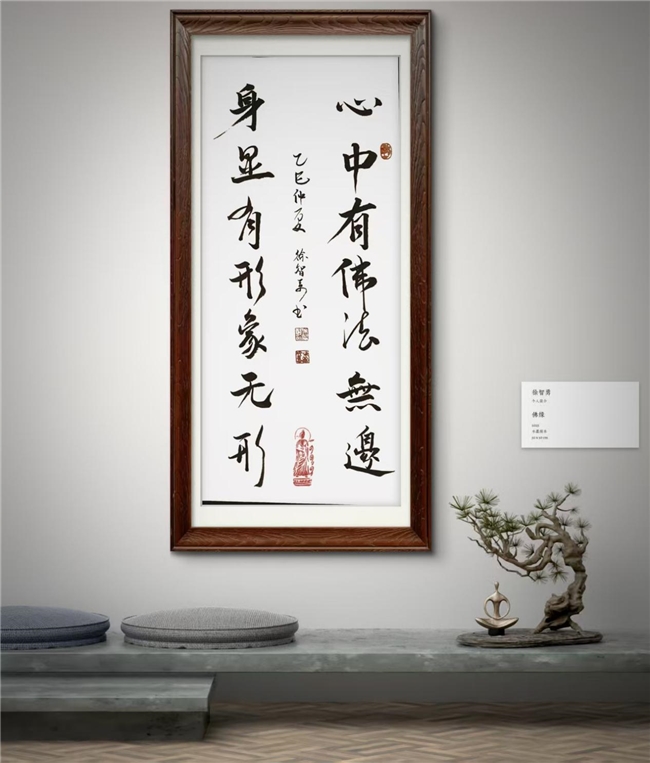 心中有佛法無邊
身显有形象无形
乙巳仲夏 徐智男书
徐智男
佛缘